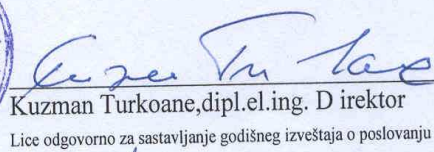 Kuzman Turkoane,dipl.el.ing. D irektor
Lice odgovorno za sastavljanje godišneg izveštaja o poslovanju